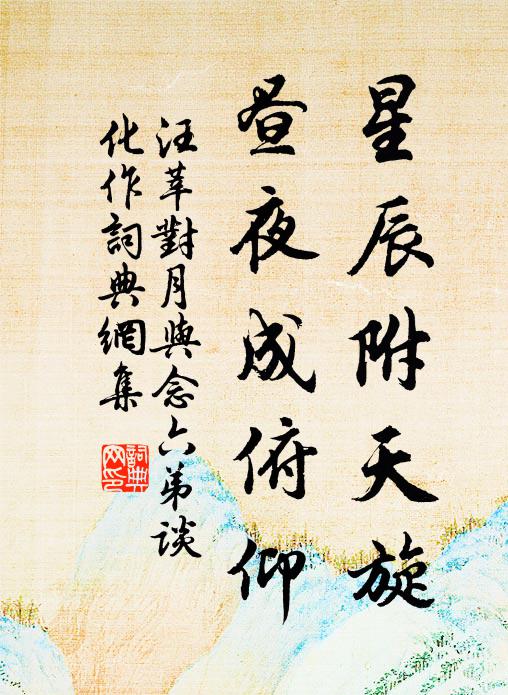 星辰附天旋
昼夜成俯仰
汪莘對月與念六弟談
化作詞典網集
詞典
网印